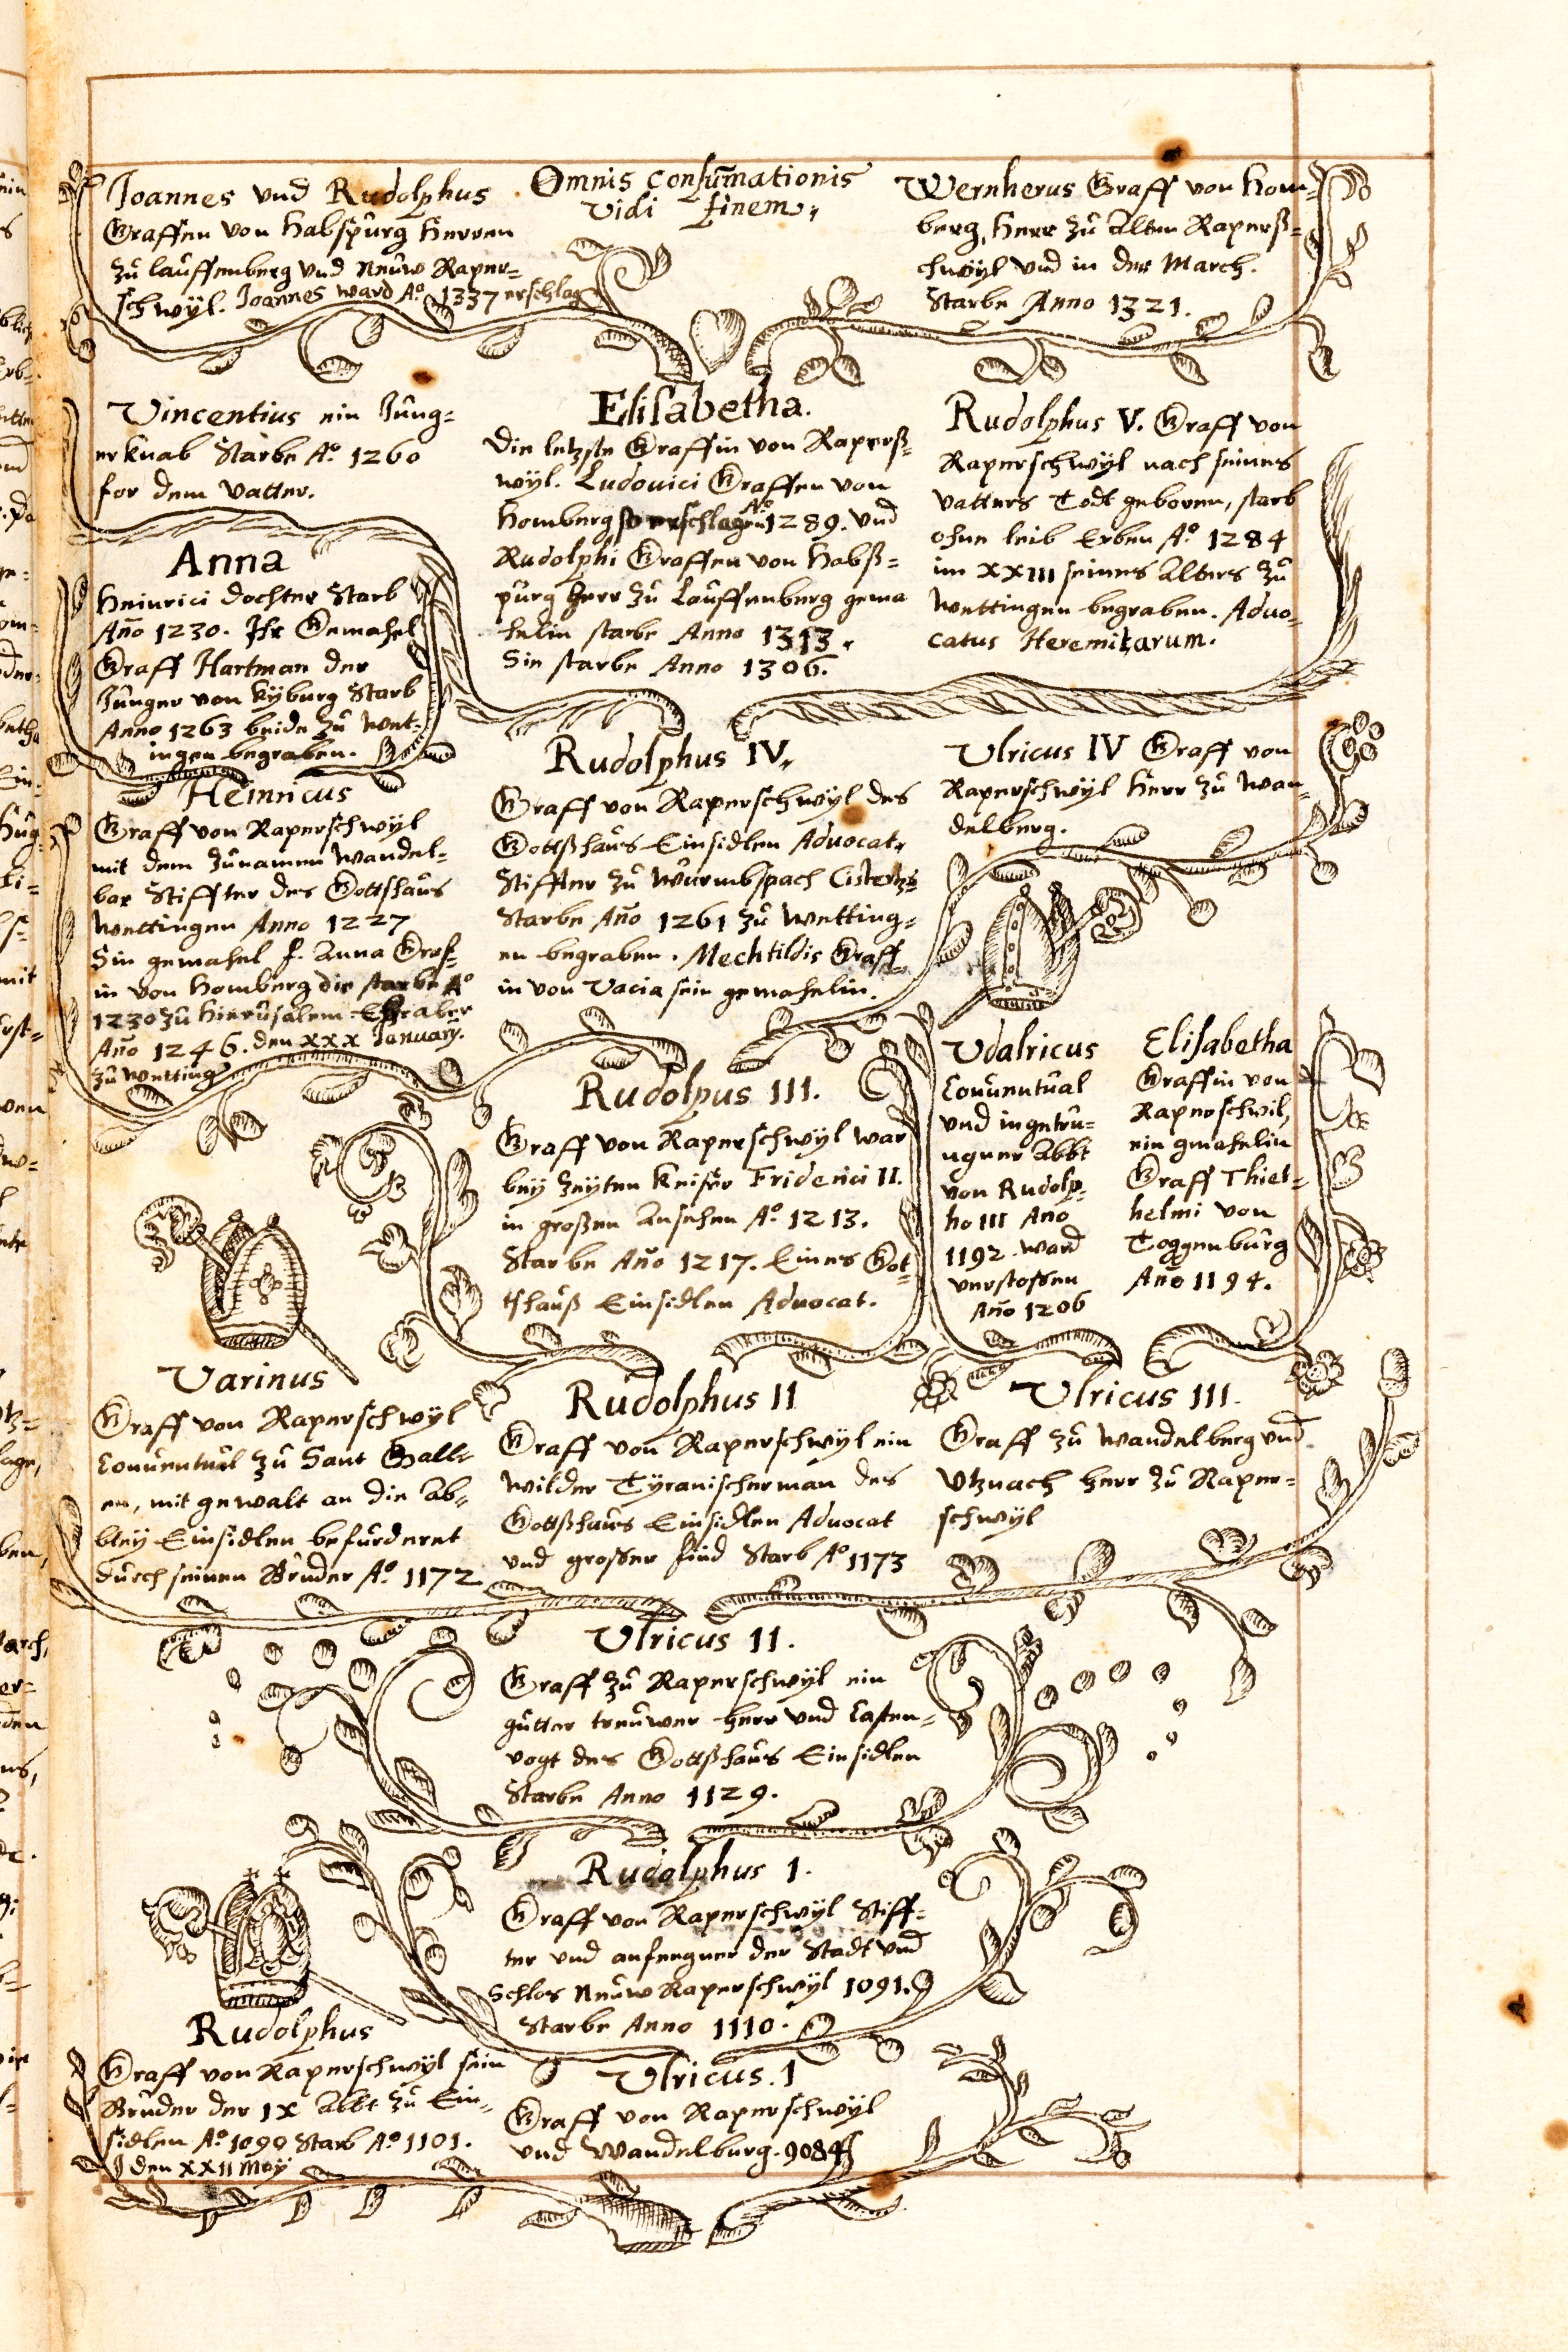 Joannes und Rudolphus
Graffen von Habspurg Herren
zů lauffenberg und neůw Raper=
schwÿl. Joannes ward A.º 1337 erschlag
Omnis consum̄ationis
vidi finem.
Wernherus Graff von Hom=
berg, Herr zů alten Raperß=
chwÿl und in der March.
Starbe Anno 1321.
Vincentius ein Jůng=
er knab Starbe A.º 1260
for dem vatter.
Elisabetha.
Die letzste Graffin von Raperß=
wÿl. Ludovici Graffen von
Homberg so erschlagen Aº 1289. und
Rudolphi Graffen von Habß=
půrg herr zů Lauffenberg gema
helin starbe Anno 1313.
Sin starbe Anno 1306.
Rudolphus V. Graff von
Raperschwÿl nach seines
vatters Todt geboren, starb
ohne leib Erben A.º 1284
im XXIII seines alters zů
Wettingen begraben. Advo=
catus Heremitarum.
Anna
Heinrici dochter Starb
Año 1230. Ihr Gemahel
Graff Hartman der
Jůnger von Kÿburg Starb
Anno 1263 beide zů Wet=
ingen begraben.
Rudolphus IV.
Graff von Raperschwÿl des
Gottßhaůs Einsidlen Advocat.
Stiffter zů Wůrmbspach Cisterts:
Starbe Año 1261 zů Wetting=
en begraben. Mechtildis Graff
in von Vacia sein gemahelin.
Ulricus IV Graff von
Raperschwÿl Herr zů Wan=
delberg.
Heinricus
Graff von Raperschwÿl
mit dem zůnamen Wandel=
bar Stiffter des Gottshaůs
Wettingen Anno 1227
Sin gemahel f. Anna Gref=
in von Homberg die starbe Aº
1230 zů Hierůsalem. Er aber
Año 1246. den XXX January.
zů Wetting
Rudolpus III.
Graff von Raperschwÿl war
beÿ zeÿten Keiser Friderici II.
in großen ansehen A.º 1213.
Starbe Año 1217. Eines Got=
tshauß Einsidlen Advocat.
Udalricus
Conůentůal
und ingetrů=
ngner Abbt
von Rudolp=
ho III Año
1192. ward
verstossen
Año 1206
Elisabetha
Graffin von
Raperschwil,
ein gmahelin
Graff Thiet=
helmi von
Toggenbůrg
Año 1194.
Varinus
Graff von Raperschwÿl
Conůentůal zů Sant Gall=
en, mit gewalt an die Ab=
bteÿ Einsidlen befůrderet
důrch seinen Brůder A.º 1172
Rudolphus II
Graff von Raperschwÿl ein
wilder Tÿranischer man des
Gottßhaůs Einsidlen Advocat
und grosser find Starb A.º 1173
Ulricus III.
Graff zů Wandelberg und
Utznach herr zů Raper=
schwÿl
Ulricus II.
Graff zů Raperschwÿl ein
gůtter treůwer herr und Casten=
vogt des Gottßhaůs Einsidlen
Starbe Anno 1129.
Rudolphus I.
Graff von Raperschwÿl Stiff=
ter und anfengner der Stadt und
Schlos neůw Raperschwÿl 1091.
Starbe Anno 1110.
Rudolphus
Graff von Raperschwÿl sein
Brůder der IX Abbt zů Ein=
sidlen A.º 1090 Starb A.º 1101.
den XXII Maÿ
Ulricus. I
Graff von Raperschwÿl
und Wandelburg. 9084